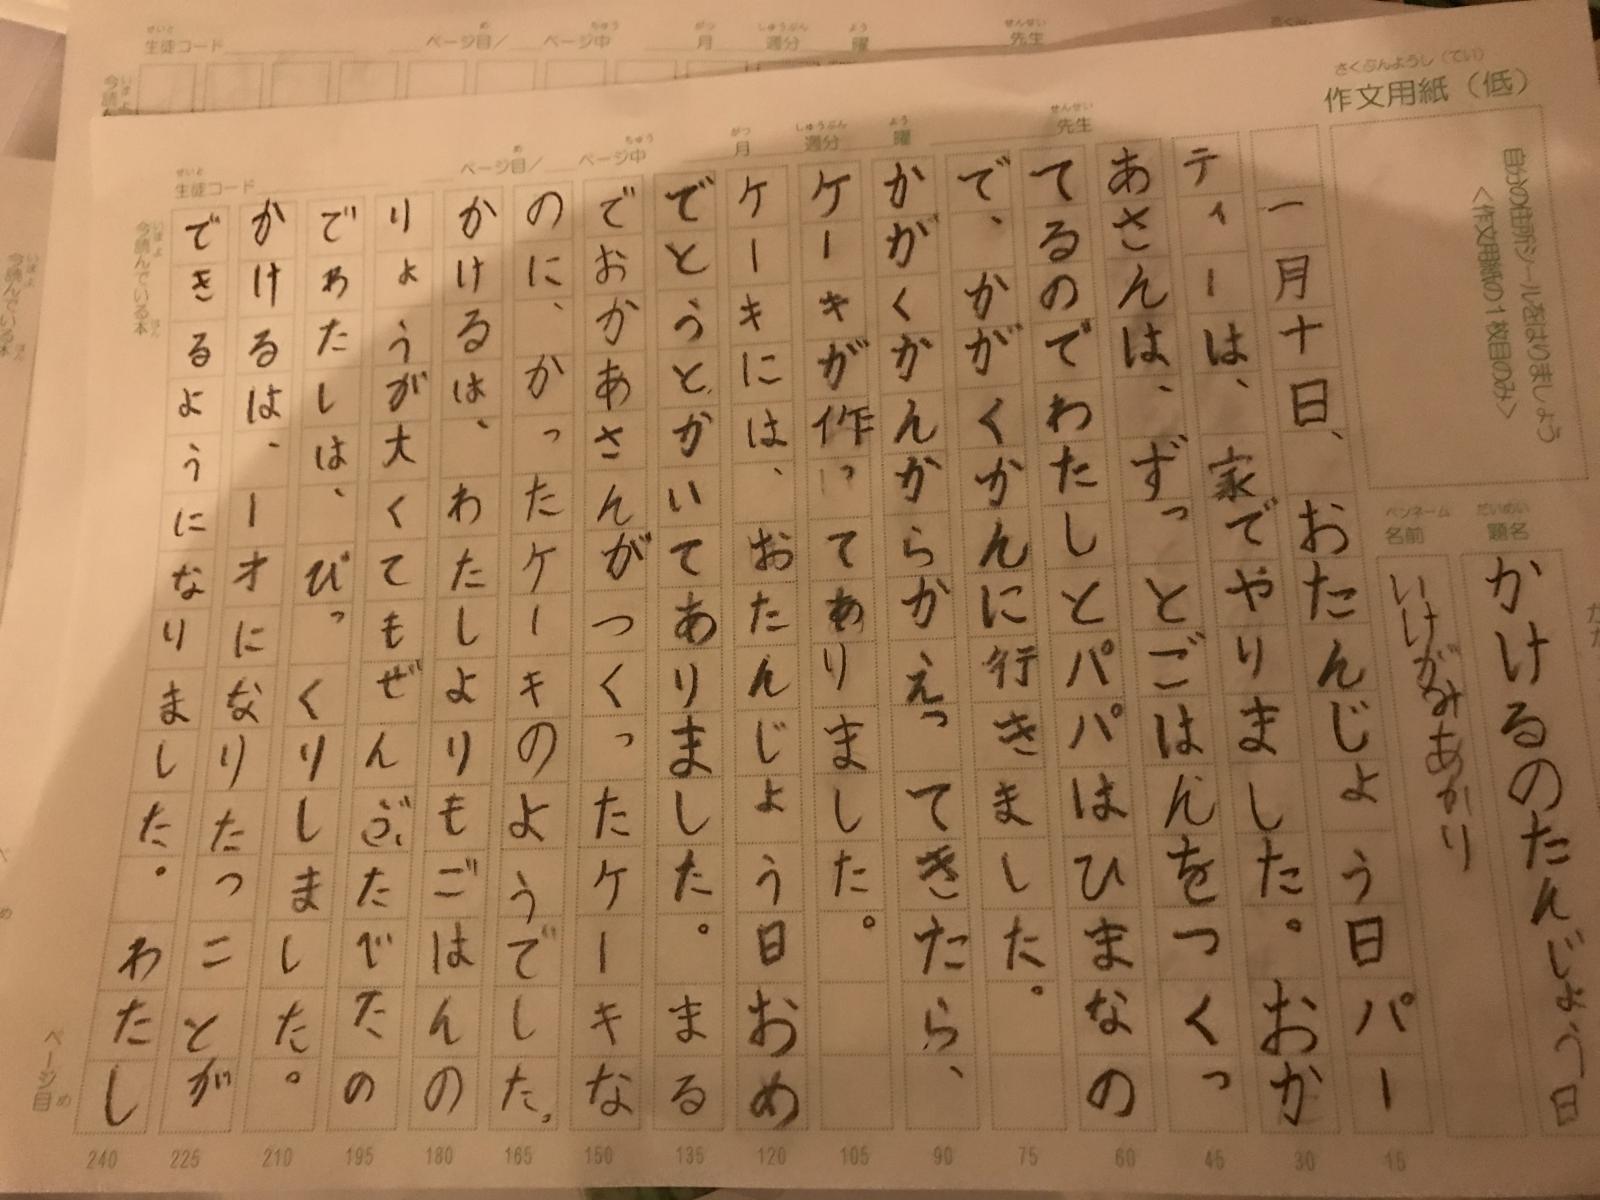 さくぶんようし（てい）
作文用紙（低）
自分の住所シールをはりましょう
＜作文用紙の1枚目のみ＞
だいめい
題名
かけるのたんじょう日
ペンネーム
名前
いけがみあかり
せいと
生徒コード
め
ページ目／
ちゅう
ページ中
がつ
月
しゅうぶん
週分
よう
曜
せんせい
先生
一月十日、おたんじょう日パー
ティーは、家でやりました。おか
あさんは、ずっとごはんをつくっ
てるのでわたしとパパはひまなの
で、かがくかんに行きました。
かがくかんからかえってきたら、
ケーキが作ってありました。
ケーキには、おたんじょう日おめ
でとうとかいてありました。まる
でおかあさんがつくったケーキな
のに、かったケーキのようでした。
かけるは、わたしよりもごはんの
りょうが大くてもぜんぶたべたの
でわたしは、びっくりしました。
かけるは、一才になりたっことが
できるようになりました。わたし
いまよ ほん
今読んでいる本
ページ目
め
15
30
45
60
75
90
105
120
135
150
165
180
195
210
225
240
せいと
生徒コード
め
ページ目／
ちゅう
ページ中
がつ
月
しゅうぶん
週分
よう
曜
せんせい
先生
いまよ
今読んでいる本
め